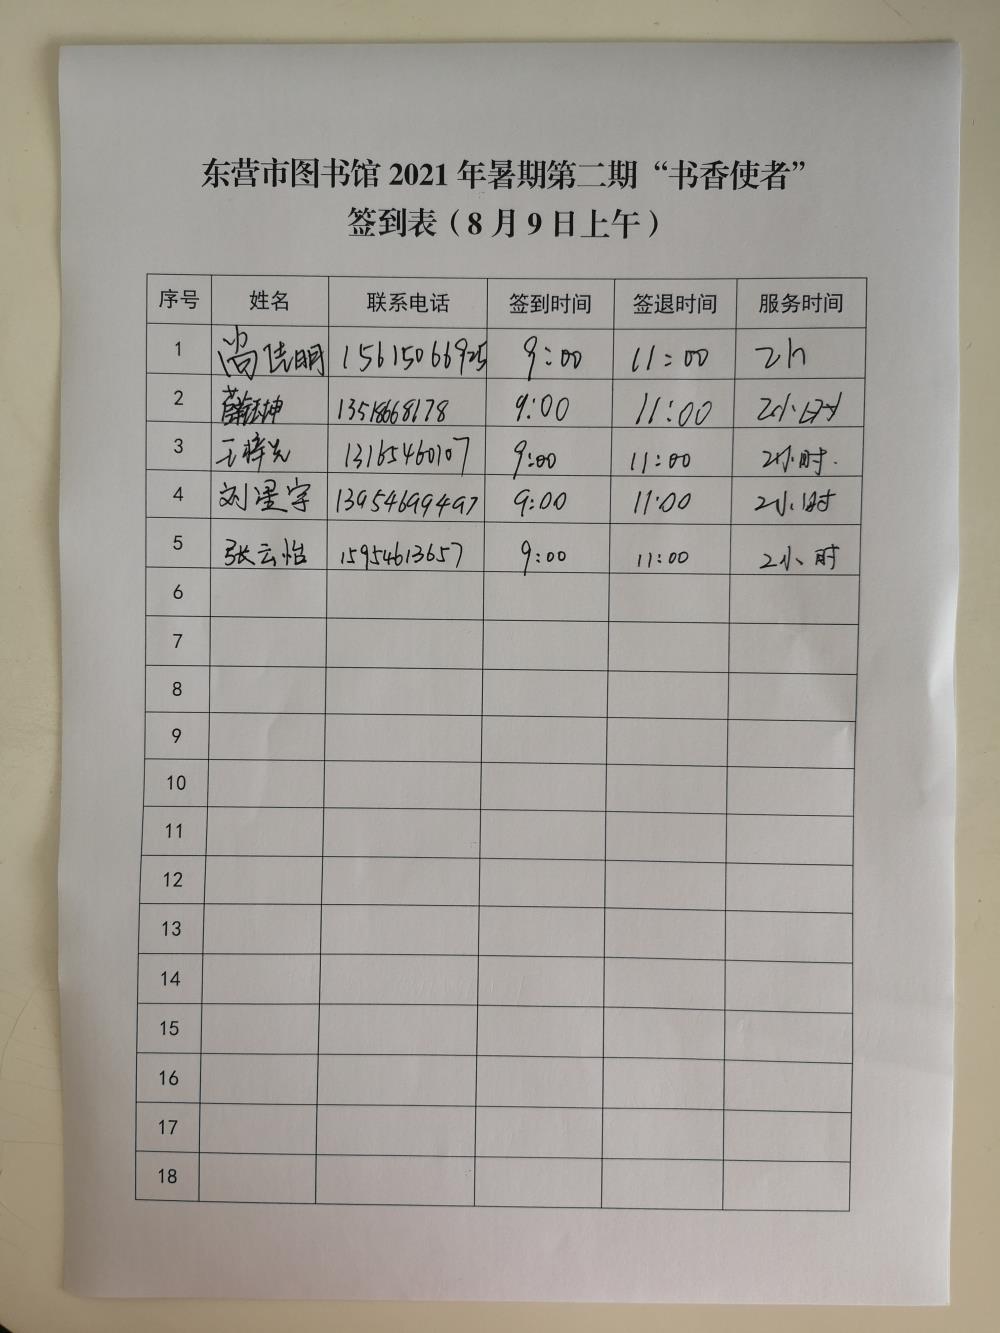 东营市图书馆 2021 年暑期第二期“书香使者”
签到表（8 月 9 日上午）
序号 姓名 联系电话 签到时间 签退时间 服务时间
1 尚佳明 15615066925 9:00 11:00 2h
2 薛钰坤 13518668178 9:00 11:00 2小时
3 王梓先 13165460107 9:00 11:00 2小时.
4 刘星宇 13954699497 9:00 11:00 2小时
5 张云怡 15954613657 9:00 11:00 2小时
6
7
8
9
10
11
12
13
14
15
16
17
18